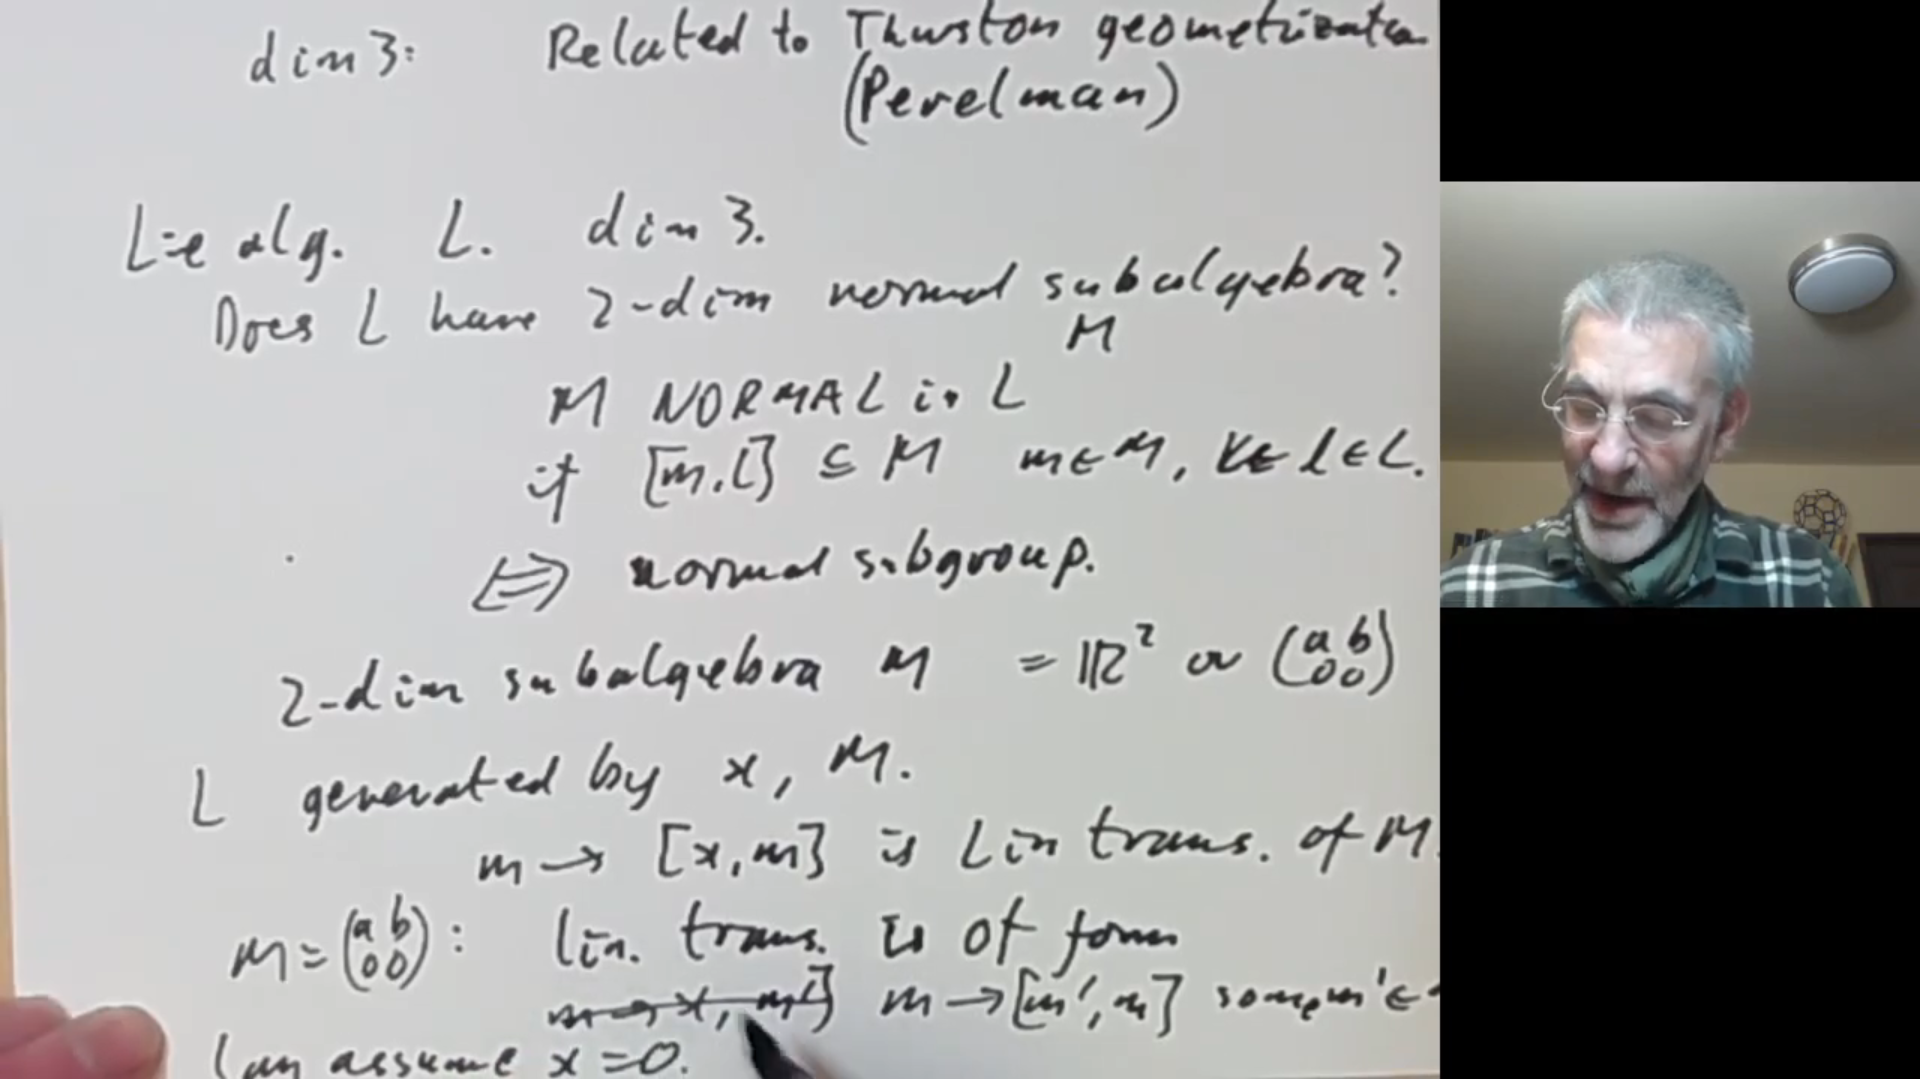 dim 3: Related to Thurston geometrization
(Perelman)
Lie alg. L. dim 3.
Does L have 2-dim normal subalgebra?
M
M NORMAL in L
if [m, l] ⊆ M m ∈ M, l ∈ L.
⇔ normal subgroup.
2-dim subalgebra M = ℝ² or (a b / 0 0)
L generated by x, M.
m → [x, m] is Lin trans. of M.
M = (a b / 0 0) : lin. trans. is of form
m → x, m'] m → [m', m] some m' ∈
Can assume x = 0.